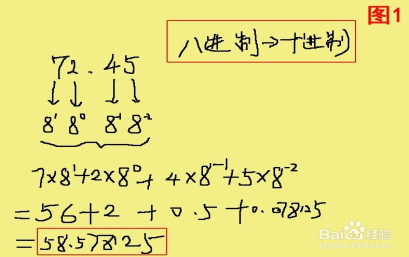 图1
八进制→十进制
72.45
↓↓ ↓↓
8¹ 8⁰ 8¹ 8²
7×8¹+2×8⁰+ 4×8⁻¹+5×8⁻²
=56+2 +0.5+0.078125
=58.578125
Baidu经验